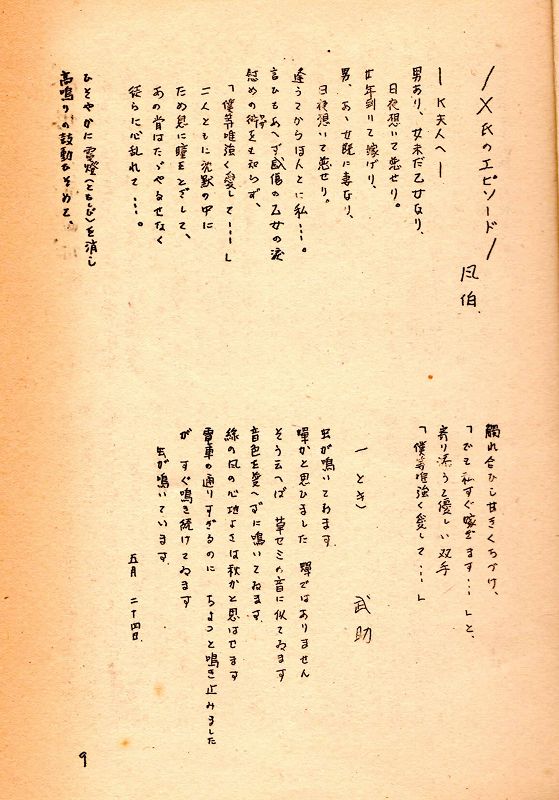 ／X氏のエピソード／
風伯
―K夫人へ―
男あり、女未だ乙女なり、
日夜想いて悲せり。
廿年到りて嫁げり、
男、あゝ女既に妻なり、
日夜想いて悲せり。
逢うてからほんとに私…。
言ひもあへず感傷の乙女の涙
慰めの術をも知らず、
「僕等唯強く愛して……」
二人ともに沈黙の中に
ため息に瞳をとざして、
あの宵はたゞやるせなく
徒らに心乱れて…。
ひそやかに電燈（ともしび）を消し
高鳴りの鼓動ひそめて、
觸れ合ひし甘きくちづけ、
「でも私すぐ嫁ぎます…」と、
寄り添うて優しい双手
「僕等唯強く愛して…」
一とき
武助
虫が鳴いてゐます
蟬かと思ひました　蟬ではありません
そう云へば　草セミの音に似てゐます
音色を変へずに鳴いてゐます
緑の風の心地よさは秋かと思はせます
電車の通りすぎるのに　ちよつと鳴き止みました
が　すぐ鳴き続けてゐます
虫が鳴いています
五月　二十四日
9